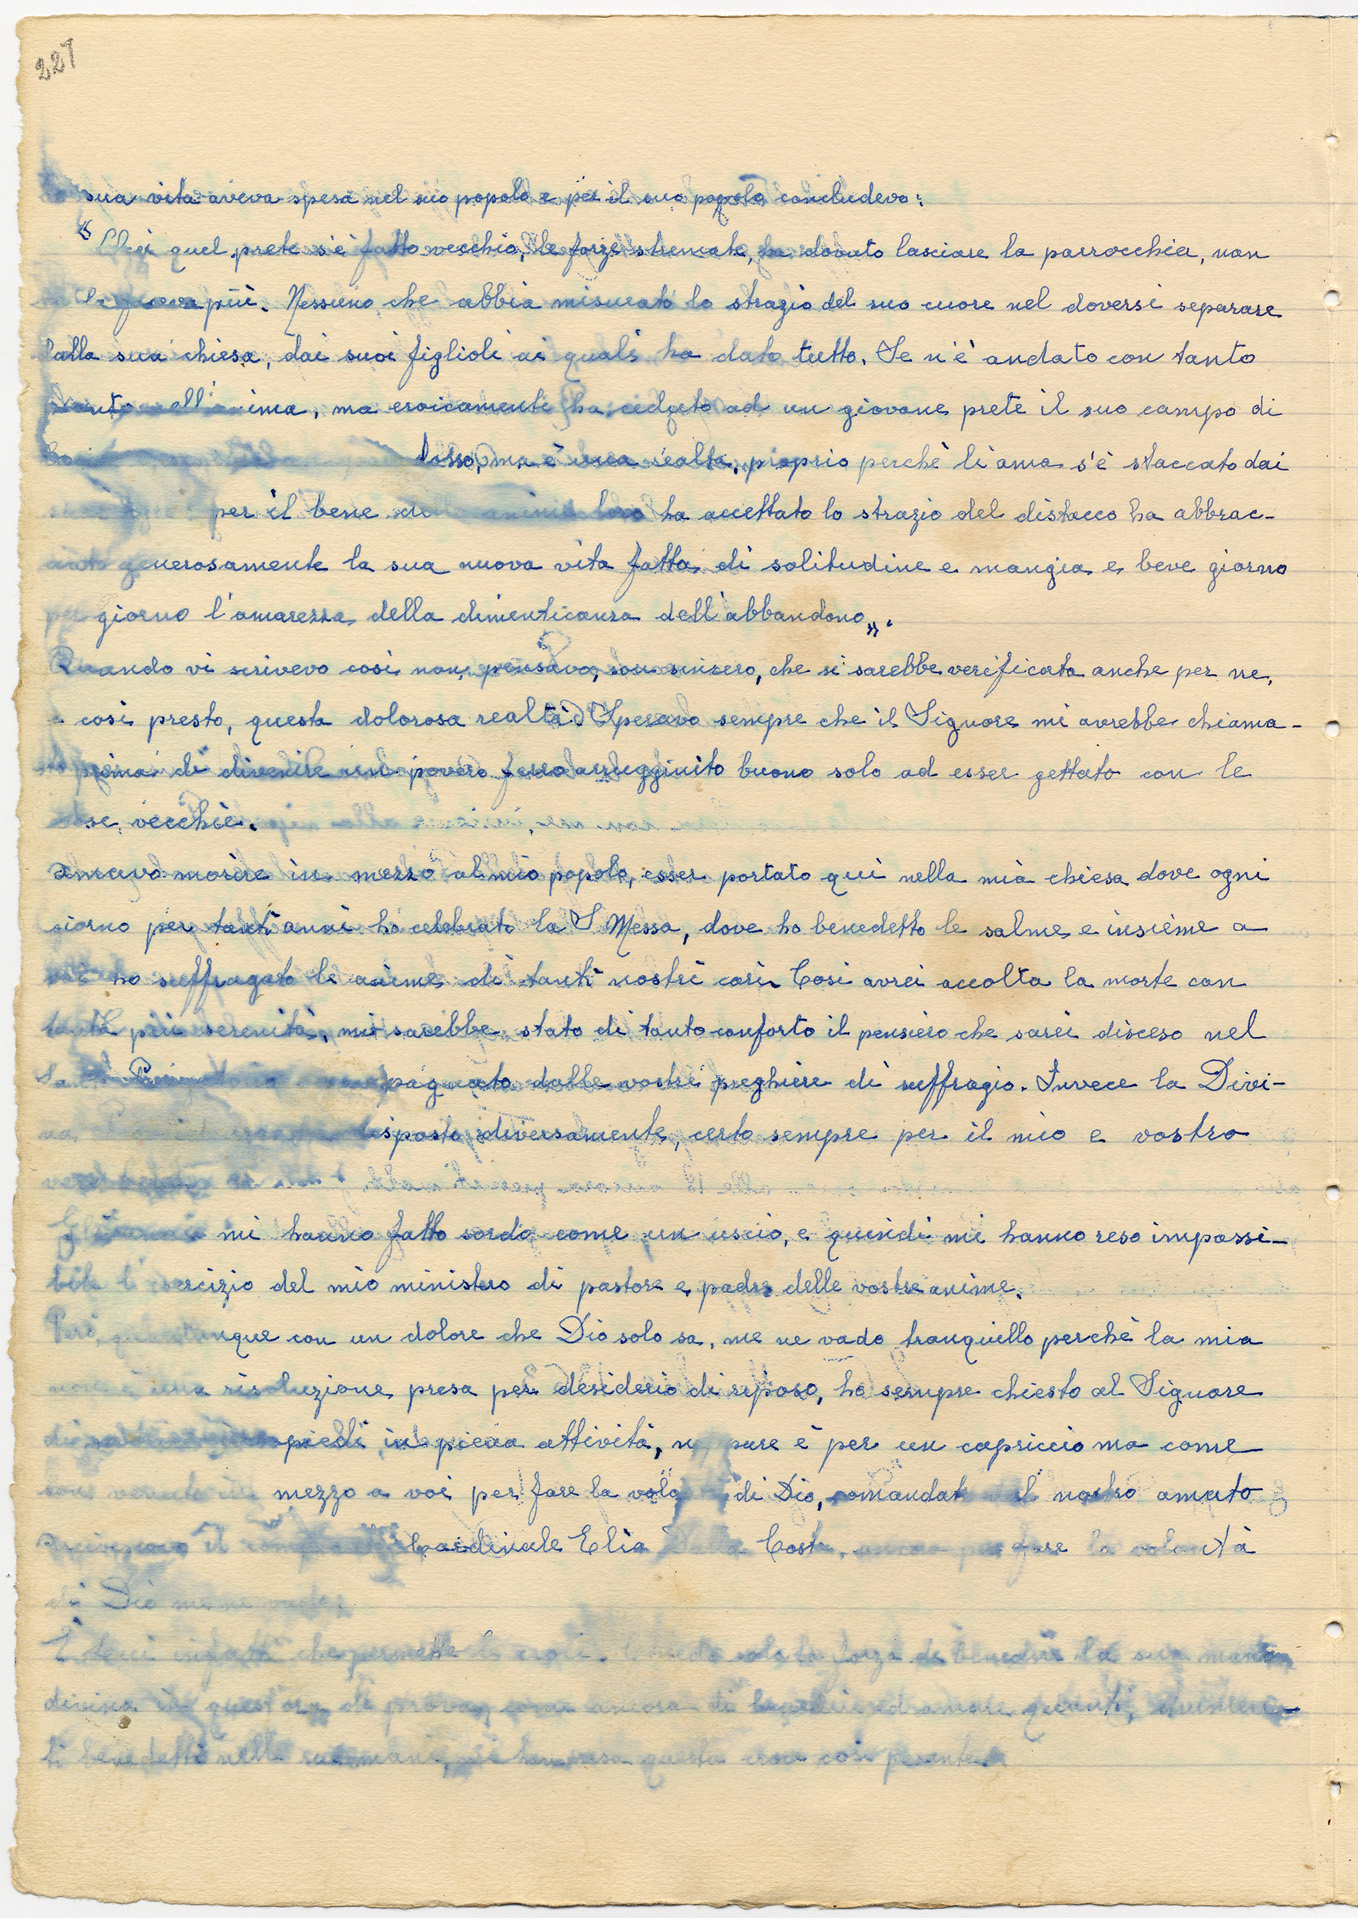 227
la sua vita aveva spesa nel suo popolo e per il suo popolo concludevo:
"Oggi quel prete s'è fatto vecchio, le forze stremate, ha dovuto lasciare la parrocchia, non
la faceva più. Nessuno che abbia misurato lo strazio del suo cuore nel doversi separare
dalla sua chiesa, dai suoi figlioli ai quali ha dato tutto. Se n'è andato con tanto
pianto nell'anima, ma eroicamente ha ceduto ad un giovane prete il suo campo di
ma è una realtà, proprio perchè li ama s'è staccato dai
per il bene delle anime loro ha accettato lo strazio del distacco ha abbrac-
ciato generosamente la sua nuova vita fatta di solitudine e mangia e beve giorno
per giorno l'amarezza della dimenticanza dell'abbandono„.
Quando vi scrivevo così non pensavo, son sincero, che si sarebbe verificata anche per me,
e così presto, questa dolorosa realtà. Speravo sempre che il Signore mi avrebbe chiama-
to prima di divenire un povero ferro arrugginito buono solo ad esser gettato con le
cose vecchie.
Amavo morire in mezzo al mio popolo, esser portato qui nella mia chiesa dove ogni
giorno per tanti anni ho celebrato la S. Messa, dove ho benedetto le salme e insieme a
voi ho suffragato le anime di tanti nostri cari. Così avrei accolta la morte con
tanta più serenità, mi sarebbe stato di tanto conforto il pensiero che sarei disceso nel
Santo accompagnato dalle vostre preghiere di suffragio. Invece la Divi-
na disposto diversamente, certo sempre per il mio e vostro
Gli mi hanno fatto sordo come un uscio, e quindi mi hanno reso impossi-
bile l'esercizio del mio ministero di pastore e padre delle vostre anime.
Però, quantunque con un dolore che Dio solo sa, me ne vado tranquillo perchè la mia
non è una risoluzione presa per desiderio di riposo, ho sempre chiesto al Signore
di piedi, in piena attività, neppure è per un capriccio ma come
sono venuto in mezzo a voi per fare la volontà di Dio, comandato il nostro amato
Arcivescovo il Cardinale Elia Dalla Costa, ancora per fare la volontà
di Dio me ne vado.
È Lui infatti che permette la croce. Chiedo solo la forza di benedire la sua mano
divina in quest'ora di prova, come ancora di benedire ed amare quanti,
ti benedetti nelle sue mani, mi han resa questa croce così pesante.